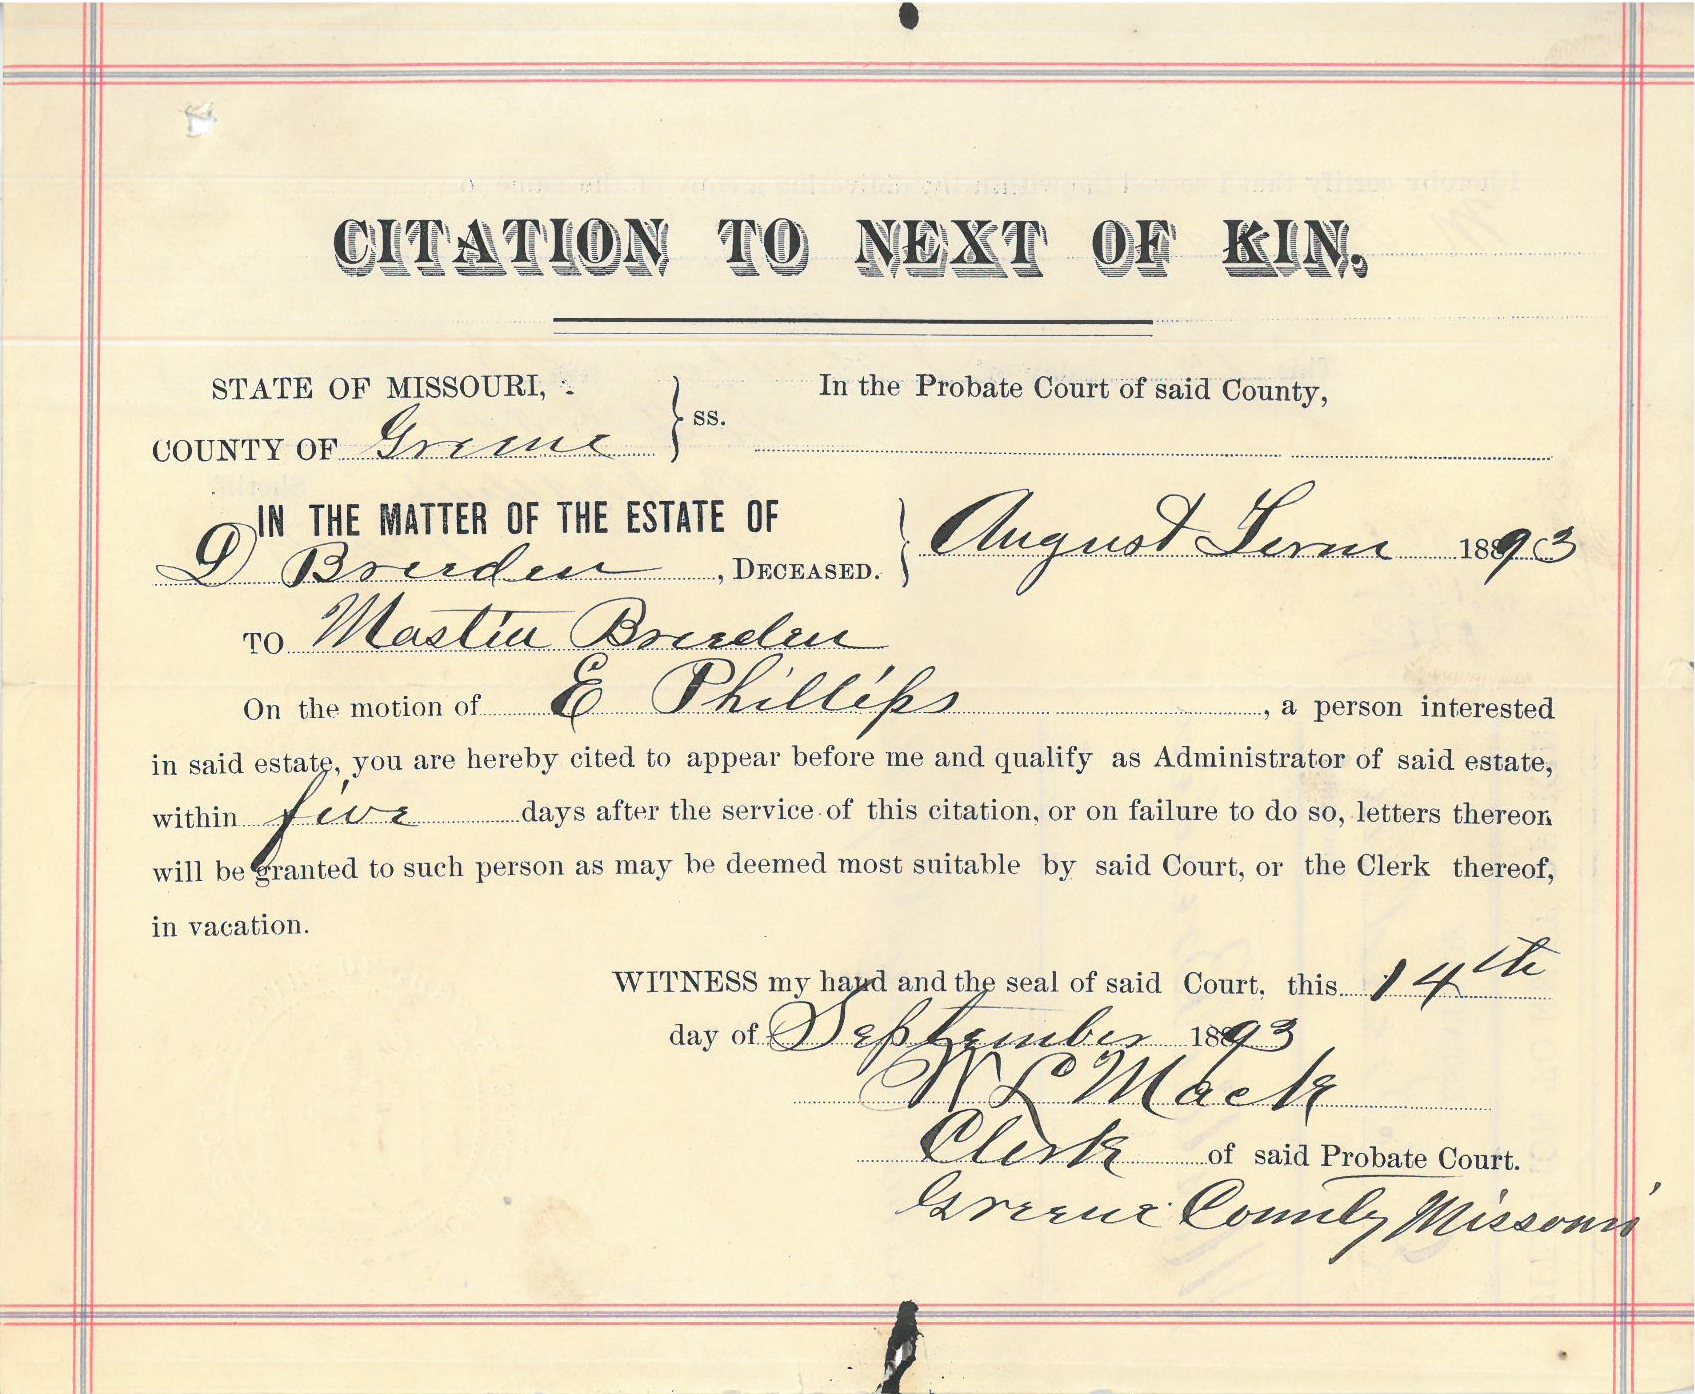 CITATION TO NEXT OF KIN.
STATE OF MISSOURI, } ss. In the Probate Court of said County,
COUNTY OF Greene
IN THE MATTER OF THE ESTATE OF
D Breeden, DECEASED. } August Term 1893
TO Mastin Breeden
On the motion of E Phillips, a person interested
in said estate, you are hereby cited to appear before me and qualify as Administrator of said estate,
within five days after the service of this citation, or on failure to do so, letters thereon
will be granted to such person as may be deemed most suitable by said Court, or the Clerk thereof,
in vacation.
WITNESS my hand and the seal of said Court, this 14th
day of September 1893
W L Mack
Clerk of said Probate Court.
Greene County Missouri